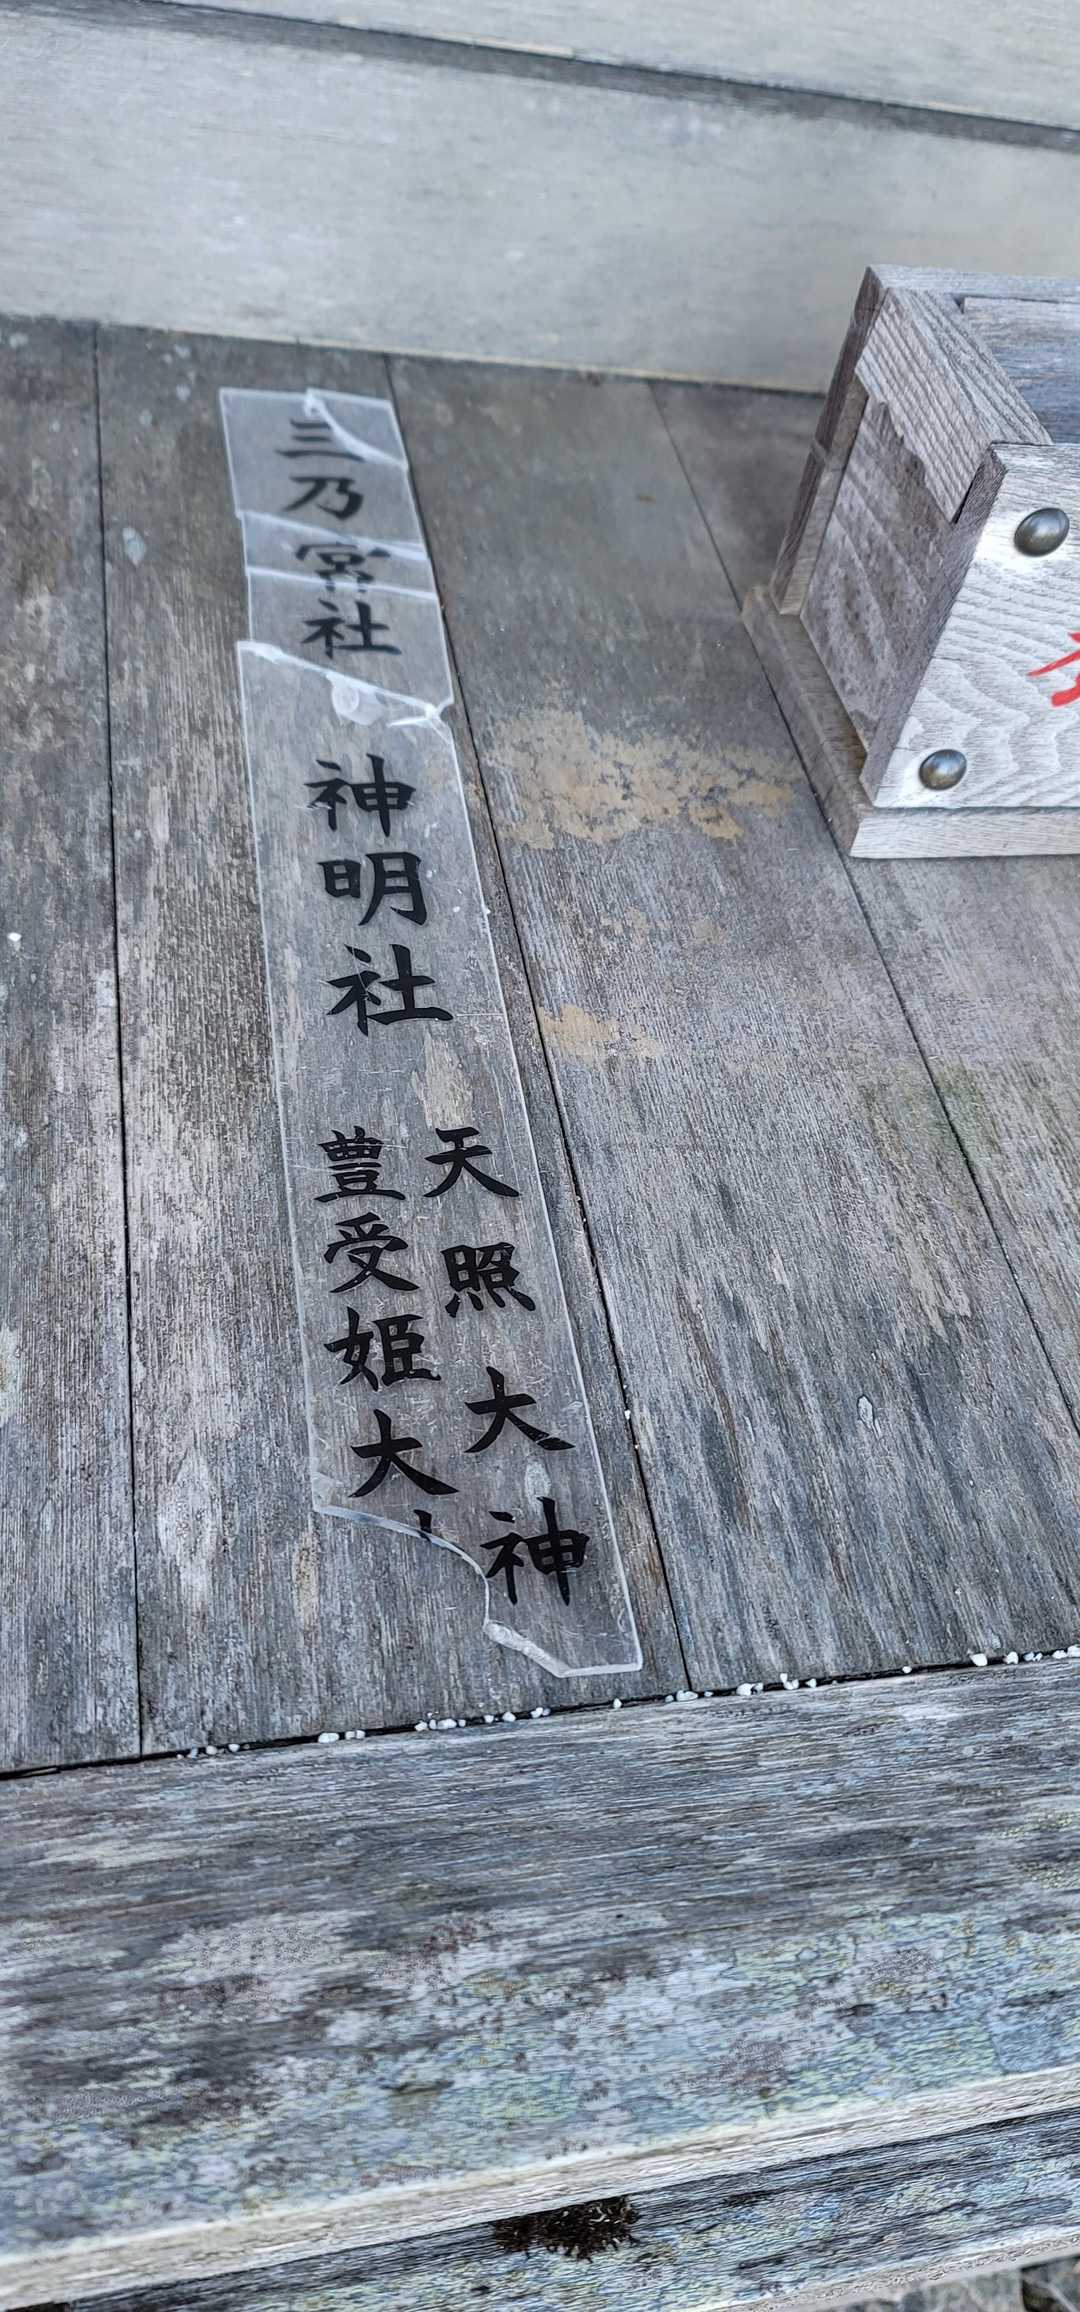 三乃宮社
神明社
天照大神
豊受姫大